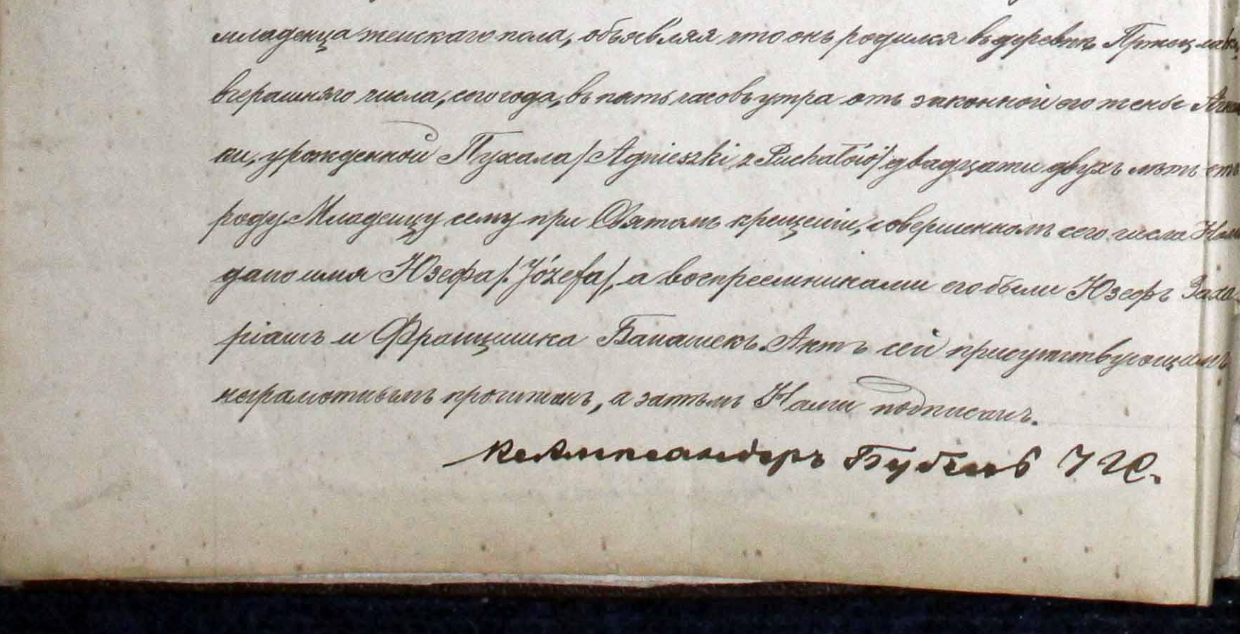 младенца женскаго пола, объявляя что онъ родился въ деревнѣ
вчерашняго числа, сего года, въ пять часовъ утра отъ законной его жены
ки, урожденной Пухала /Agnieszki z Puchałów/ двадцати двухъ лѣтъ отъ
роду. Младенцу сему при Святомъ крещеніи, совершенномъ сего числа
дано имя Юзефа /Józefa/, а воспреемниками его были Юзефъ Заха-
ріашъ и Францишка Банашекъ. Актъ сей присутствующимъ
неграмотнымъ прочитанъ, а затѣмъ Нами подписанъ.
Кс Александеръ